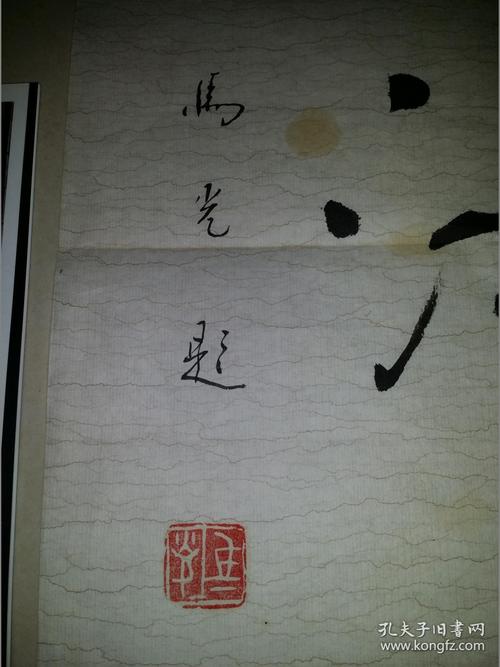 馬光题
孔夫子旧书网
www.kongfz.com